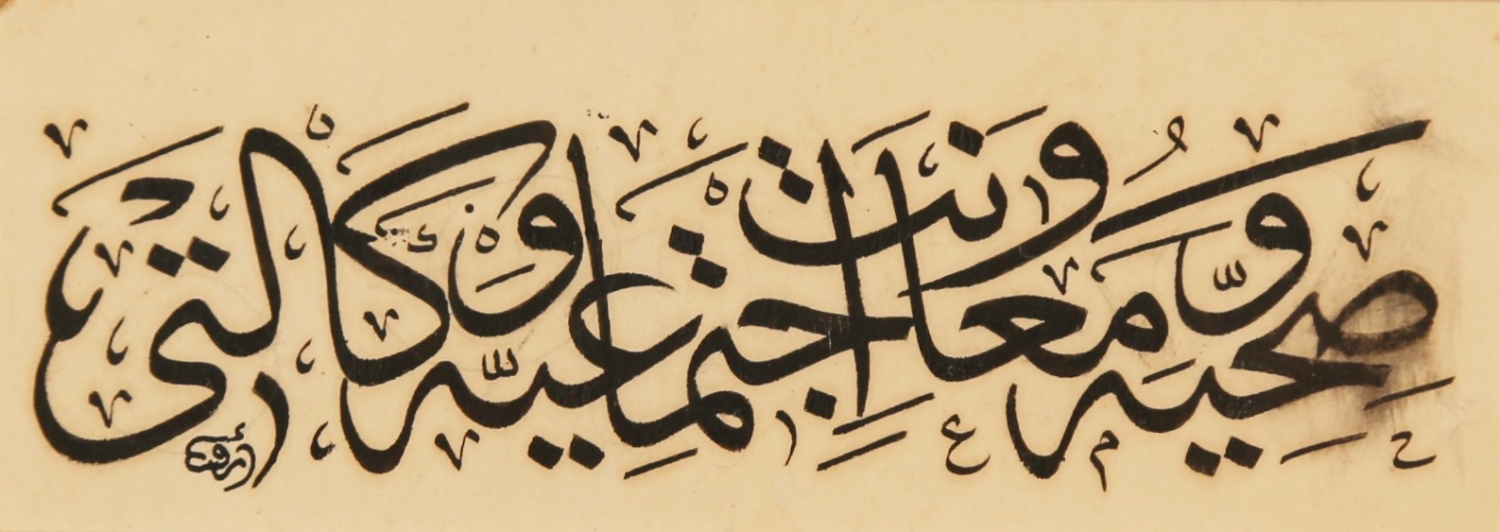 صحيه و معاونت اجتماعيه وكالتى